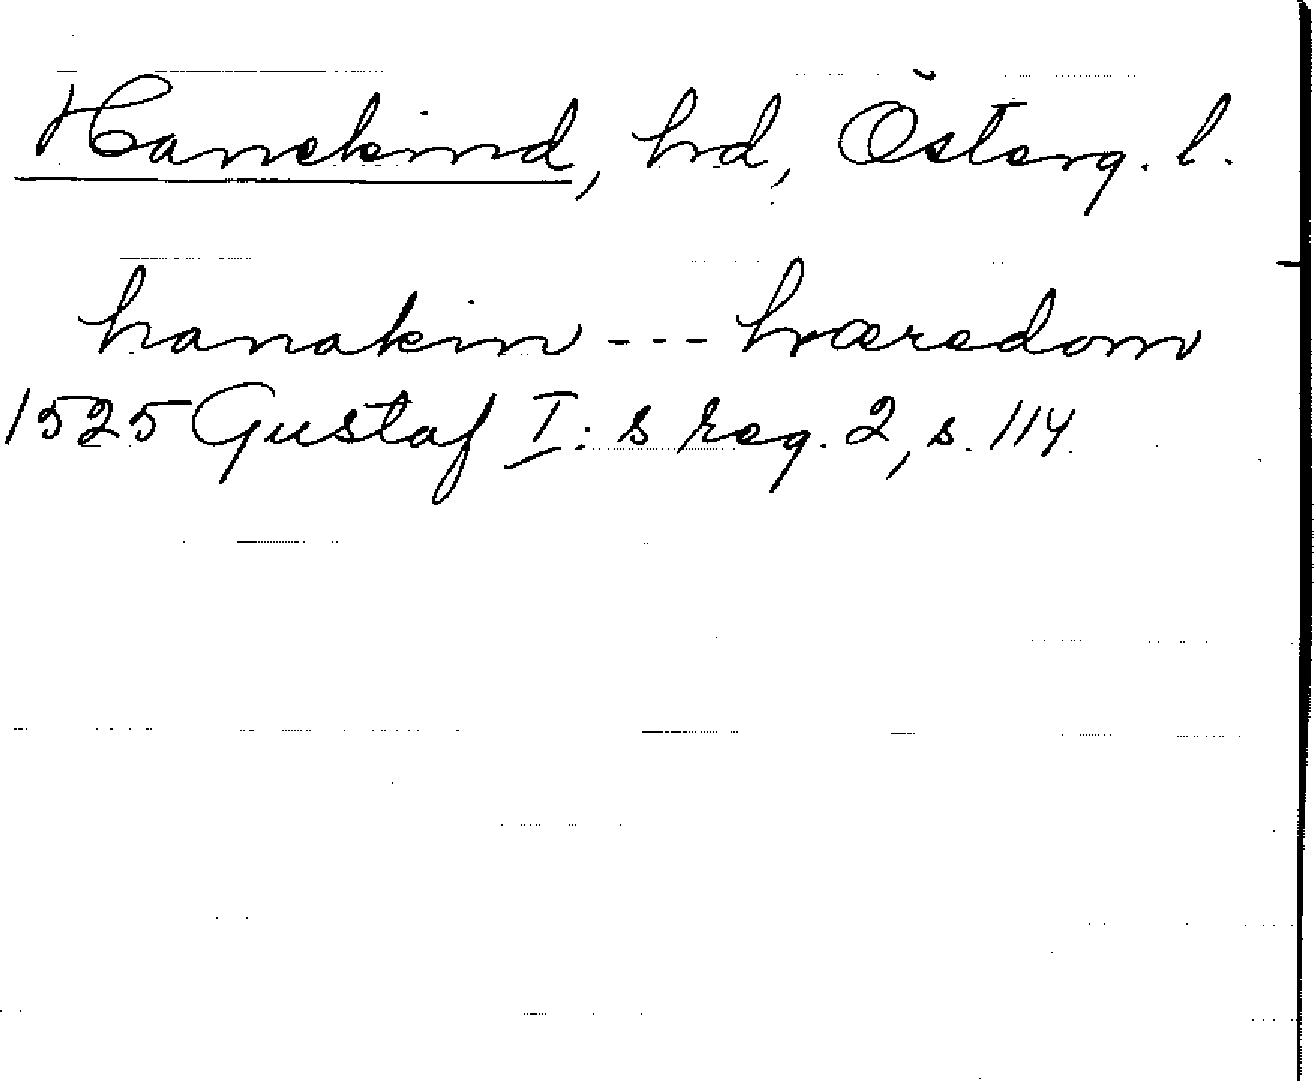 Hanekind, hd, Österg. l.
hanakin --- hæredom
1525 Gustaf I:s reg. 2, s. 114